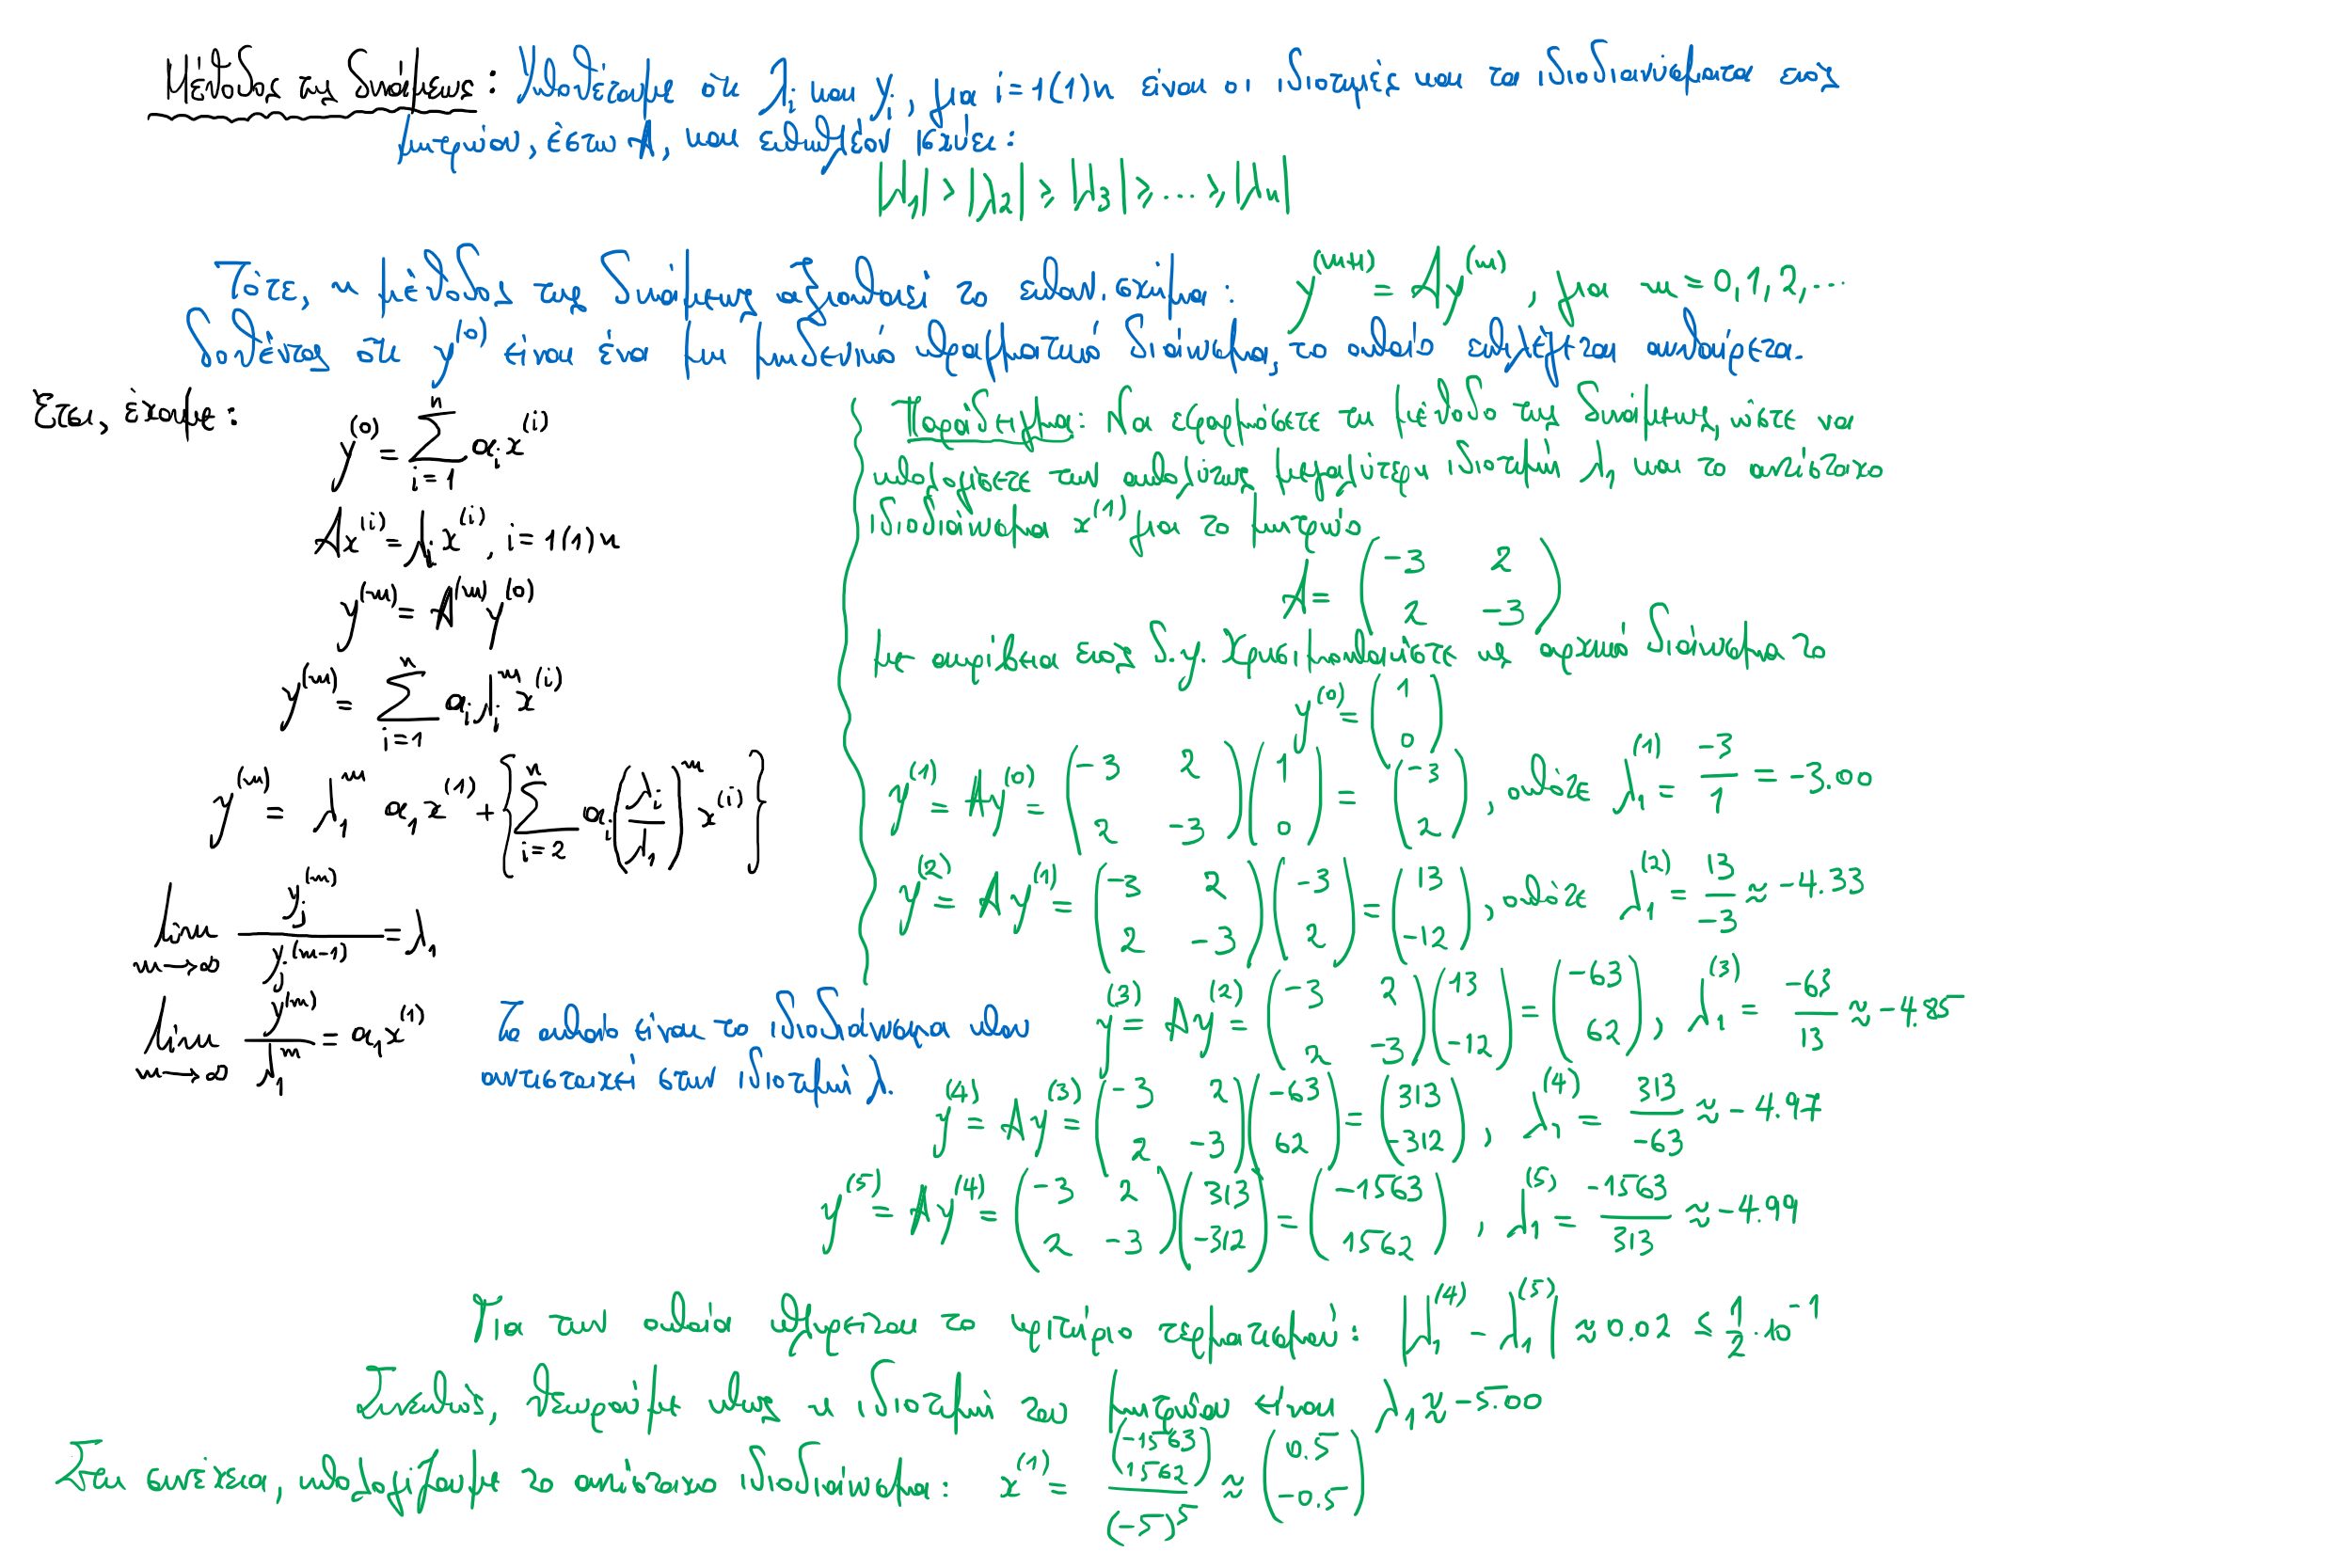 Μέθοδος της δυνάμεως: Υποθέτουμε ότι λᵢ και yᵢ, για i=1(1)n είναι οι ιδιοτιμές και τα ιδιοδιανύσματα ενός
μητρώου, έστω A, και επιπλέον ισχύει:
|λ₁| > |λ₂| ≥ |λ₃| ≥ ... ≥ |λₙ|
Τότε, η μέθοδος της δυνάμεως αξιοποιεί το επαν. σχήμα: y^(m+1) = Ay^(m), για m=0,1,2,...
δοθέντος ότι y^(0) είναι ένα μη μηδενικό πραγματικό διάνυσμα, το οποίο επιλέγεται αυθαίρετα.
Έτσι, έχουμε:
y^(0) = Σ_{i=1}^{n} aᵢ x^(i)
Ax^(i) = λᵢ x^(i), i=1(1)n
y^(m) = A^(m) y^(0)
y^(m) = Σ_{i=1}^{n} aᵢ λᵢ^m x^(i)
y^(m) = λ₁^m a₁ x^(1) + {Σ_{i=2}^{n} aᵢ (λᵢ/λ₁)^m x^(i)}
lim_{m→∞} yⱼ^(m) / yⱼ^(m-1) = λ₁
lim_{m→∞} y^(m) / λ₁^m = a₁x^(1)
Το οποίο είναι το ιδιοδιάνυσμα που
αντιστοιχεί στην ιδιοτιμή λ.
Παράδειγμα: Να εφαρμόσετε τη μέθοδο της δυνάμεως, ώστε να
υπολογίσετε την απολύτως μεγαλύτερη ιδιοτιμή λ₁ και το αντίστοιχο
ιδιοδιάνυσμα x^(1) για το μητρώο
A = (-3 2; 2 -3)
με ακρίβεια ενός δ.ψ. Χρησιμοποιήστε ως αρχικό διάνυσμα το
y^(0) = (1; 0)
y^(1) = Ay^(0) = (-3 2; 2 -3)(1; 0) = (-3; 2), οπότε λ₁^(1) = -3/1 = -3.00
y^(2) = Ay^(1) = (-3 2; 2 -3)(-3; 2) = (13; -12), οπότε λ₁^(2) = 13/-3 ≈ -4.33
y^(3) = Ay^(2) = (-3 2; 2 -3)(13; -12) = (-63; 62), λ₁^(3) = -63/13 ≈ -4.85
y^(4) = Ay^(3) = (-3 2; 2 -3)(-63; 62) = (313; -312), λ₁^(4) = 313/-63 ≈ -4.97
y^(5) = Ay^(4) = (-3 2; 2 -3)(313; -312) = (-1563; 1562), λ₁^(5) = -1563/313 ≈ -4.99
Για την οποία πληρείται το κριτήριο τερματισμού: |λ₁^(4) - λ₁^(5)| ≈ 0.02 ≤ 1/2 · 10^-1
Συνεπώς, θεωρούμε πως η ιδιοτιμή του μητρώου είναι λ₁ ≈ -5.00
Στη συνέχεια, υπολογίζουμε το αντίστοιχο ιδιοδιάνυσμα: x^(1) = (-1563; 1562)/(-5)^5 ≈ (0.5; -0.5)